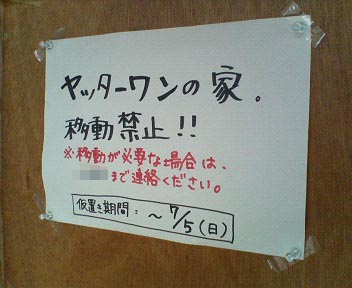 ヤッターワンの家。
移動禁止!!
※移動が必要な場合は、
まで連絡ください。
仮置き期間:~7/5(日)